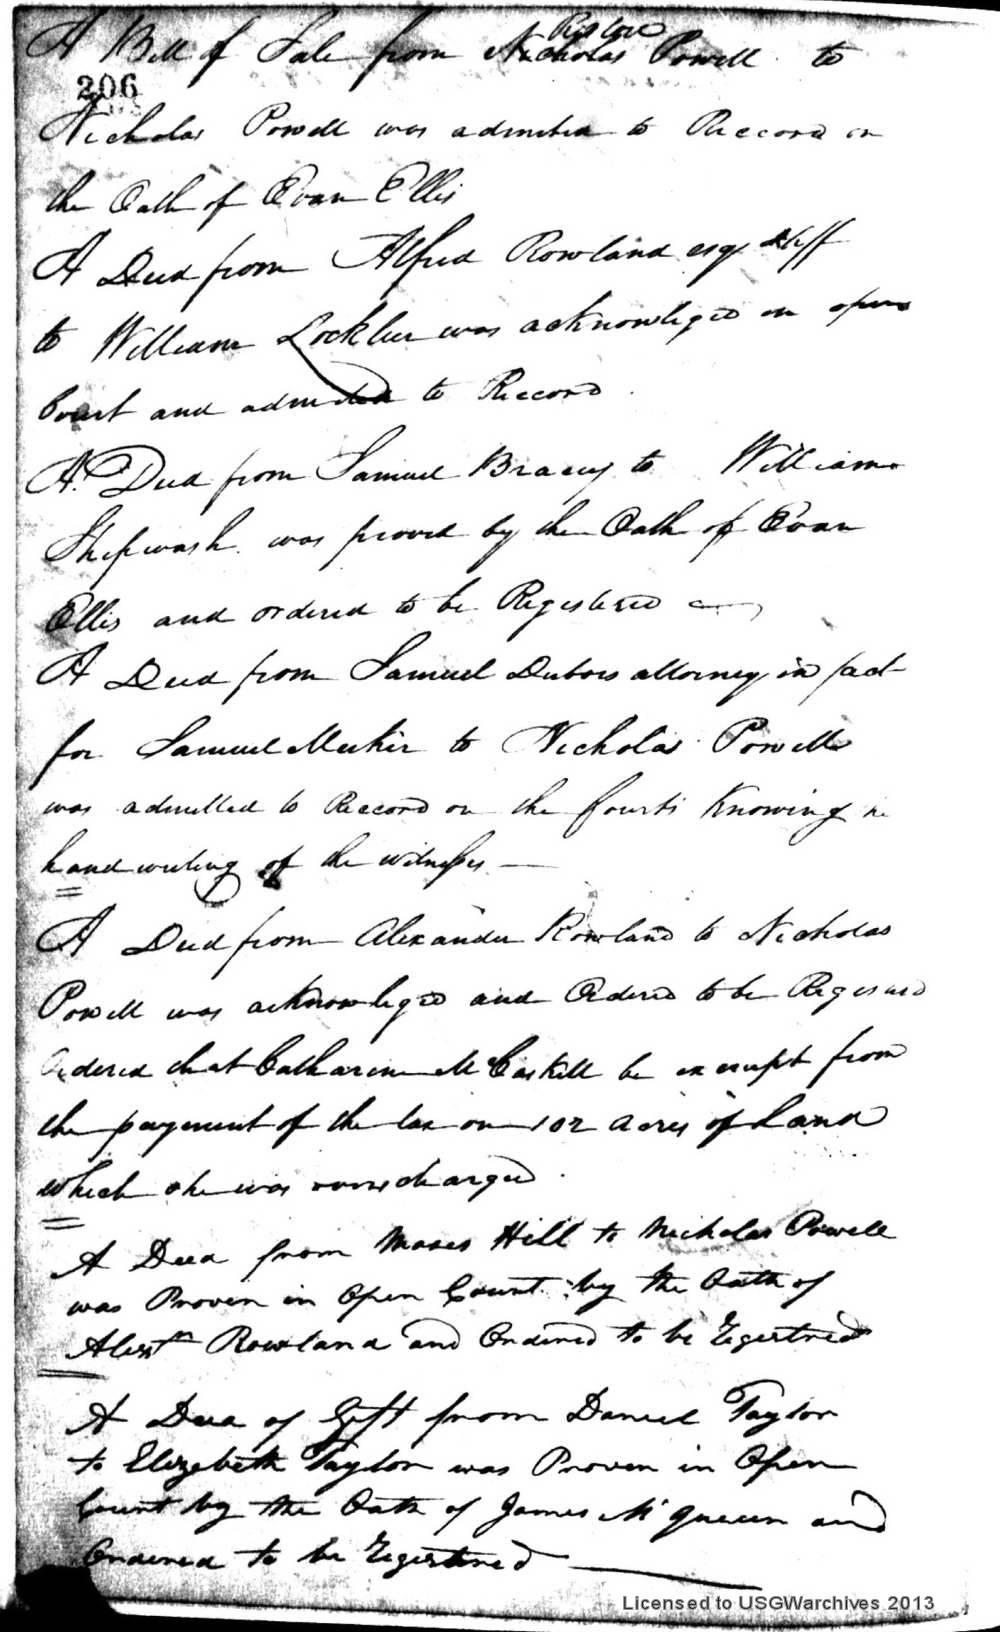 A Bill of Sale from Nicholas Powell to
206
Nicholas Powell was admitted to Reccord on
the Oath of Evan Ellis
A Deed from Alfred Rowland esqr
to William Locklier was acknowliged in open
Court and admitted to Reccord
A Deed from Samuel Bracey to William
Shipwash was proved by the Oath of Evan
Ellis and ordered to be Registered
A Deed from Samuel Dubois attorney in fact
for Samuel Meeker to Nicholas Powell
was admitted to Reccord on the Courts Knowing
hand writing of the witnesses
A Deed from Alexander Rowland to Nicholas
Powell was acknowliged and Ordered to be
Ordered that Catharine McCaskill be exempt from
the payment of the tax on 102 acres of Land
which she was overcharged
A Deed from Moses Hill to Nicholas Powell
was Proven in Open Court by the Oath of
Rowland and Ordered to be Regestred
A Deed of Gift from Daniel Taylor
to Elizebeth Taylor was Proven in Open
Court by the Oath of James McQueen and
Ordered to be Regestred
Licensed to USGWarchives 2013